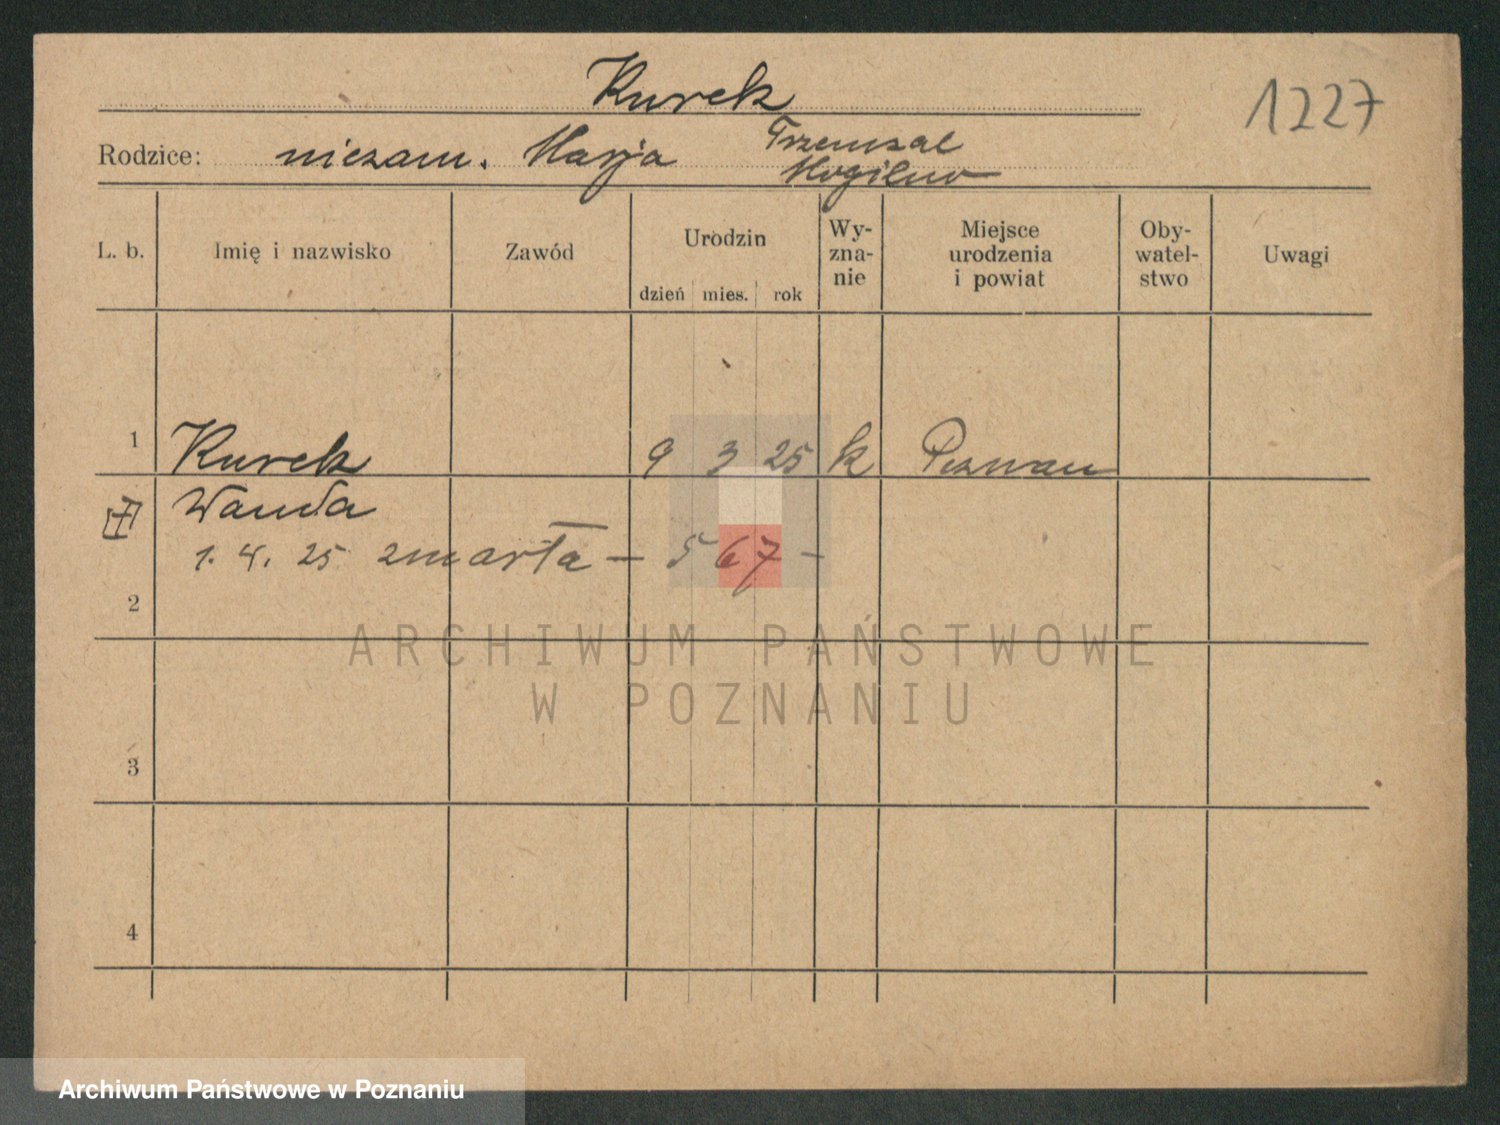 Kurek
1227
Rodzice: niezam. Marja Trzemżal
Mogilno
L. b. Imię i nazwisko Zawód Urodzin dzień mies. rok Wy-zna-nie Miejsce urodzenia i powiat Oby-watel-stwo Uwagi
1 Kurek 9 3 25 k Poznań
Wanda
1. 4. 25 zmarła – 567 –
2
ARCHIWUM PAŃSTWOWE
W POZNANIU
3
4
Archiwum Państwowe w Poznaniu